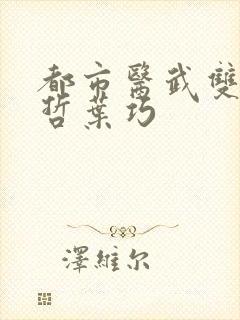 都市醫武雙
哲葉巧
澤維尔